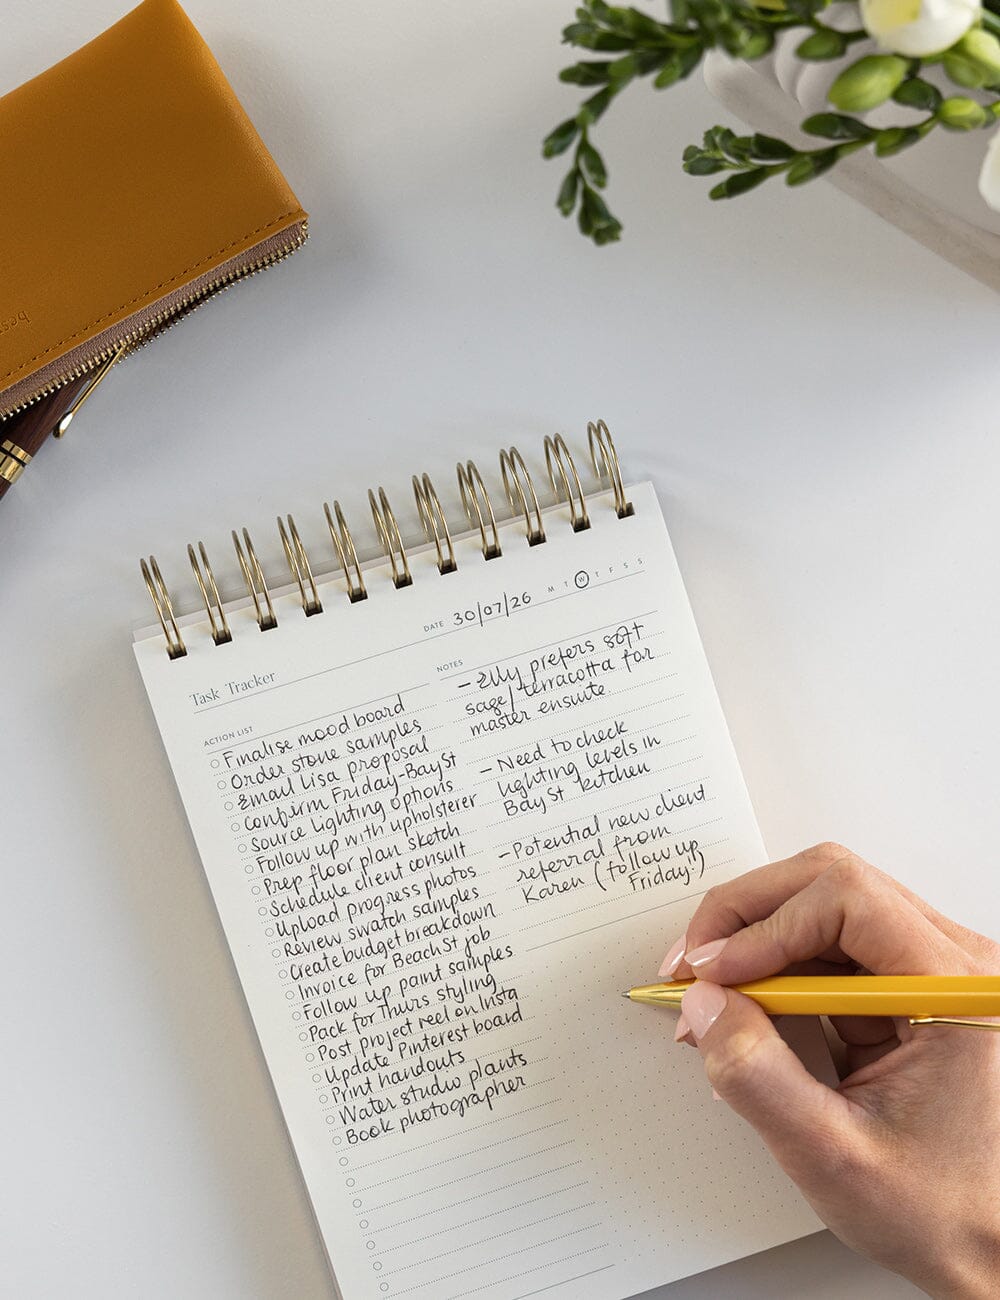 best
DATE 30/07/26 M T W T F S S
Task Tracker
ACTION LIST
Finalise mood board
Order stone samples
Email Lisa proposal
Confirm Friday-Bay St
Source Lighting options
Follow up with upholsterer
Prep floor plan sketch
Schedule client consult
Upload progress photos
Review swatch samples
Create budget breakdown
Invoice for Beach St job
Follow up paint samples
Pack for Thurs styling
Post project reel on Insta
Update Pinterest board
Print handouts
Water studio plants
Book photographer
NOTES
- Elly prefers soft
sage/terracotta for
master ensuite
- Need to check
lighting levels in
Bay St kitchen
- Potential new client
referral from
Karen (follow up
Friday!)